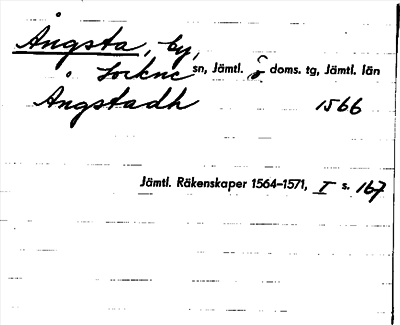 Ångsta, by,
Lockne sn, Jämtl. ö doms. tg, Jämtl. län
Ångstadh 1566
Jämtl. Räkenskaper 1564–1571, I s. 167